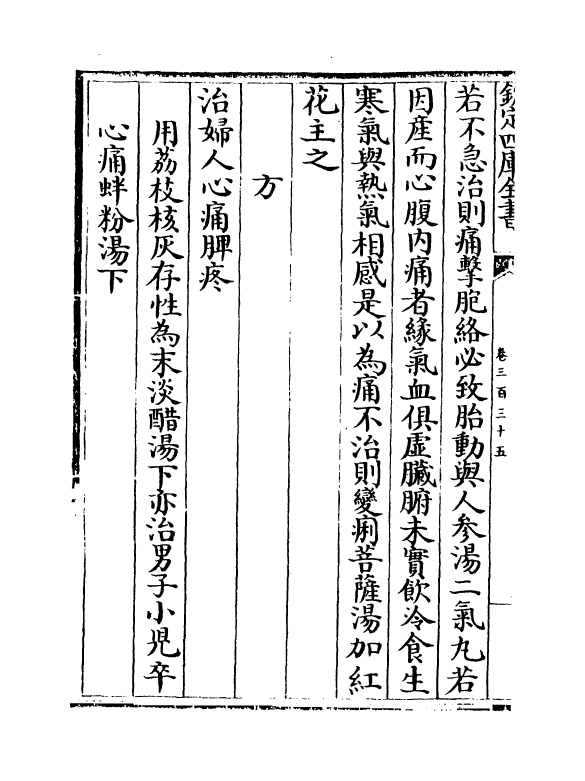 欽定四庫全書
卷三百三十五
若不急治則痛擊胞絡必致胎動與人參湯二氣丸若
因產而心腹内痛者緣氣血俱虛臟腑未實飲冷食生
寒氣與熱氣相感是以為痛不治則變痢菩薩湯加紅
花主之
方
治婦人心痛脾疼
用荔枝核灰存性為末淡醋湯下亦治男子小兒卒
心痛蚌粉湯下